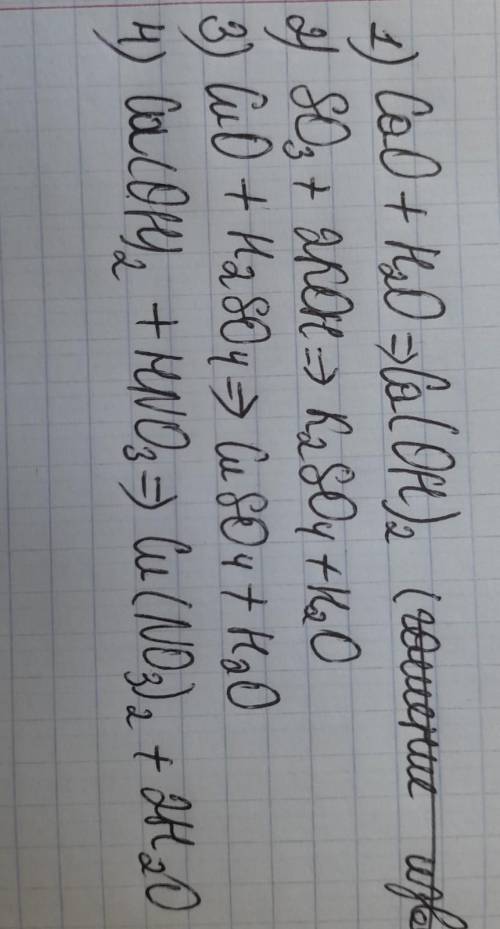 1) CaO + H2O => Ca(OH)2 (гашение изв
2) SO3 + 2KOH => K2SO4 + H2O
3) CuO + H2SO4 => CuSO4 + H2O
4) Ca(OH)2 + HNO3 => Cu(NO3)2 + 2H2O